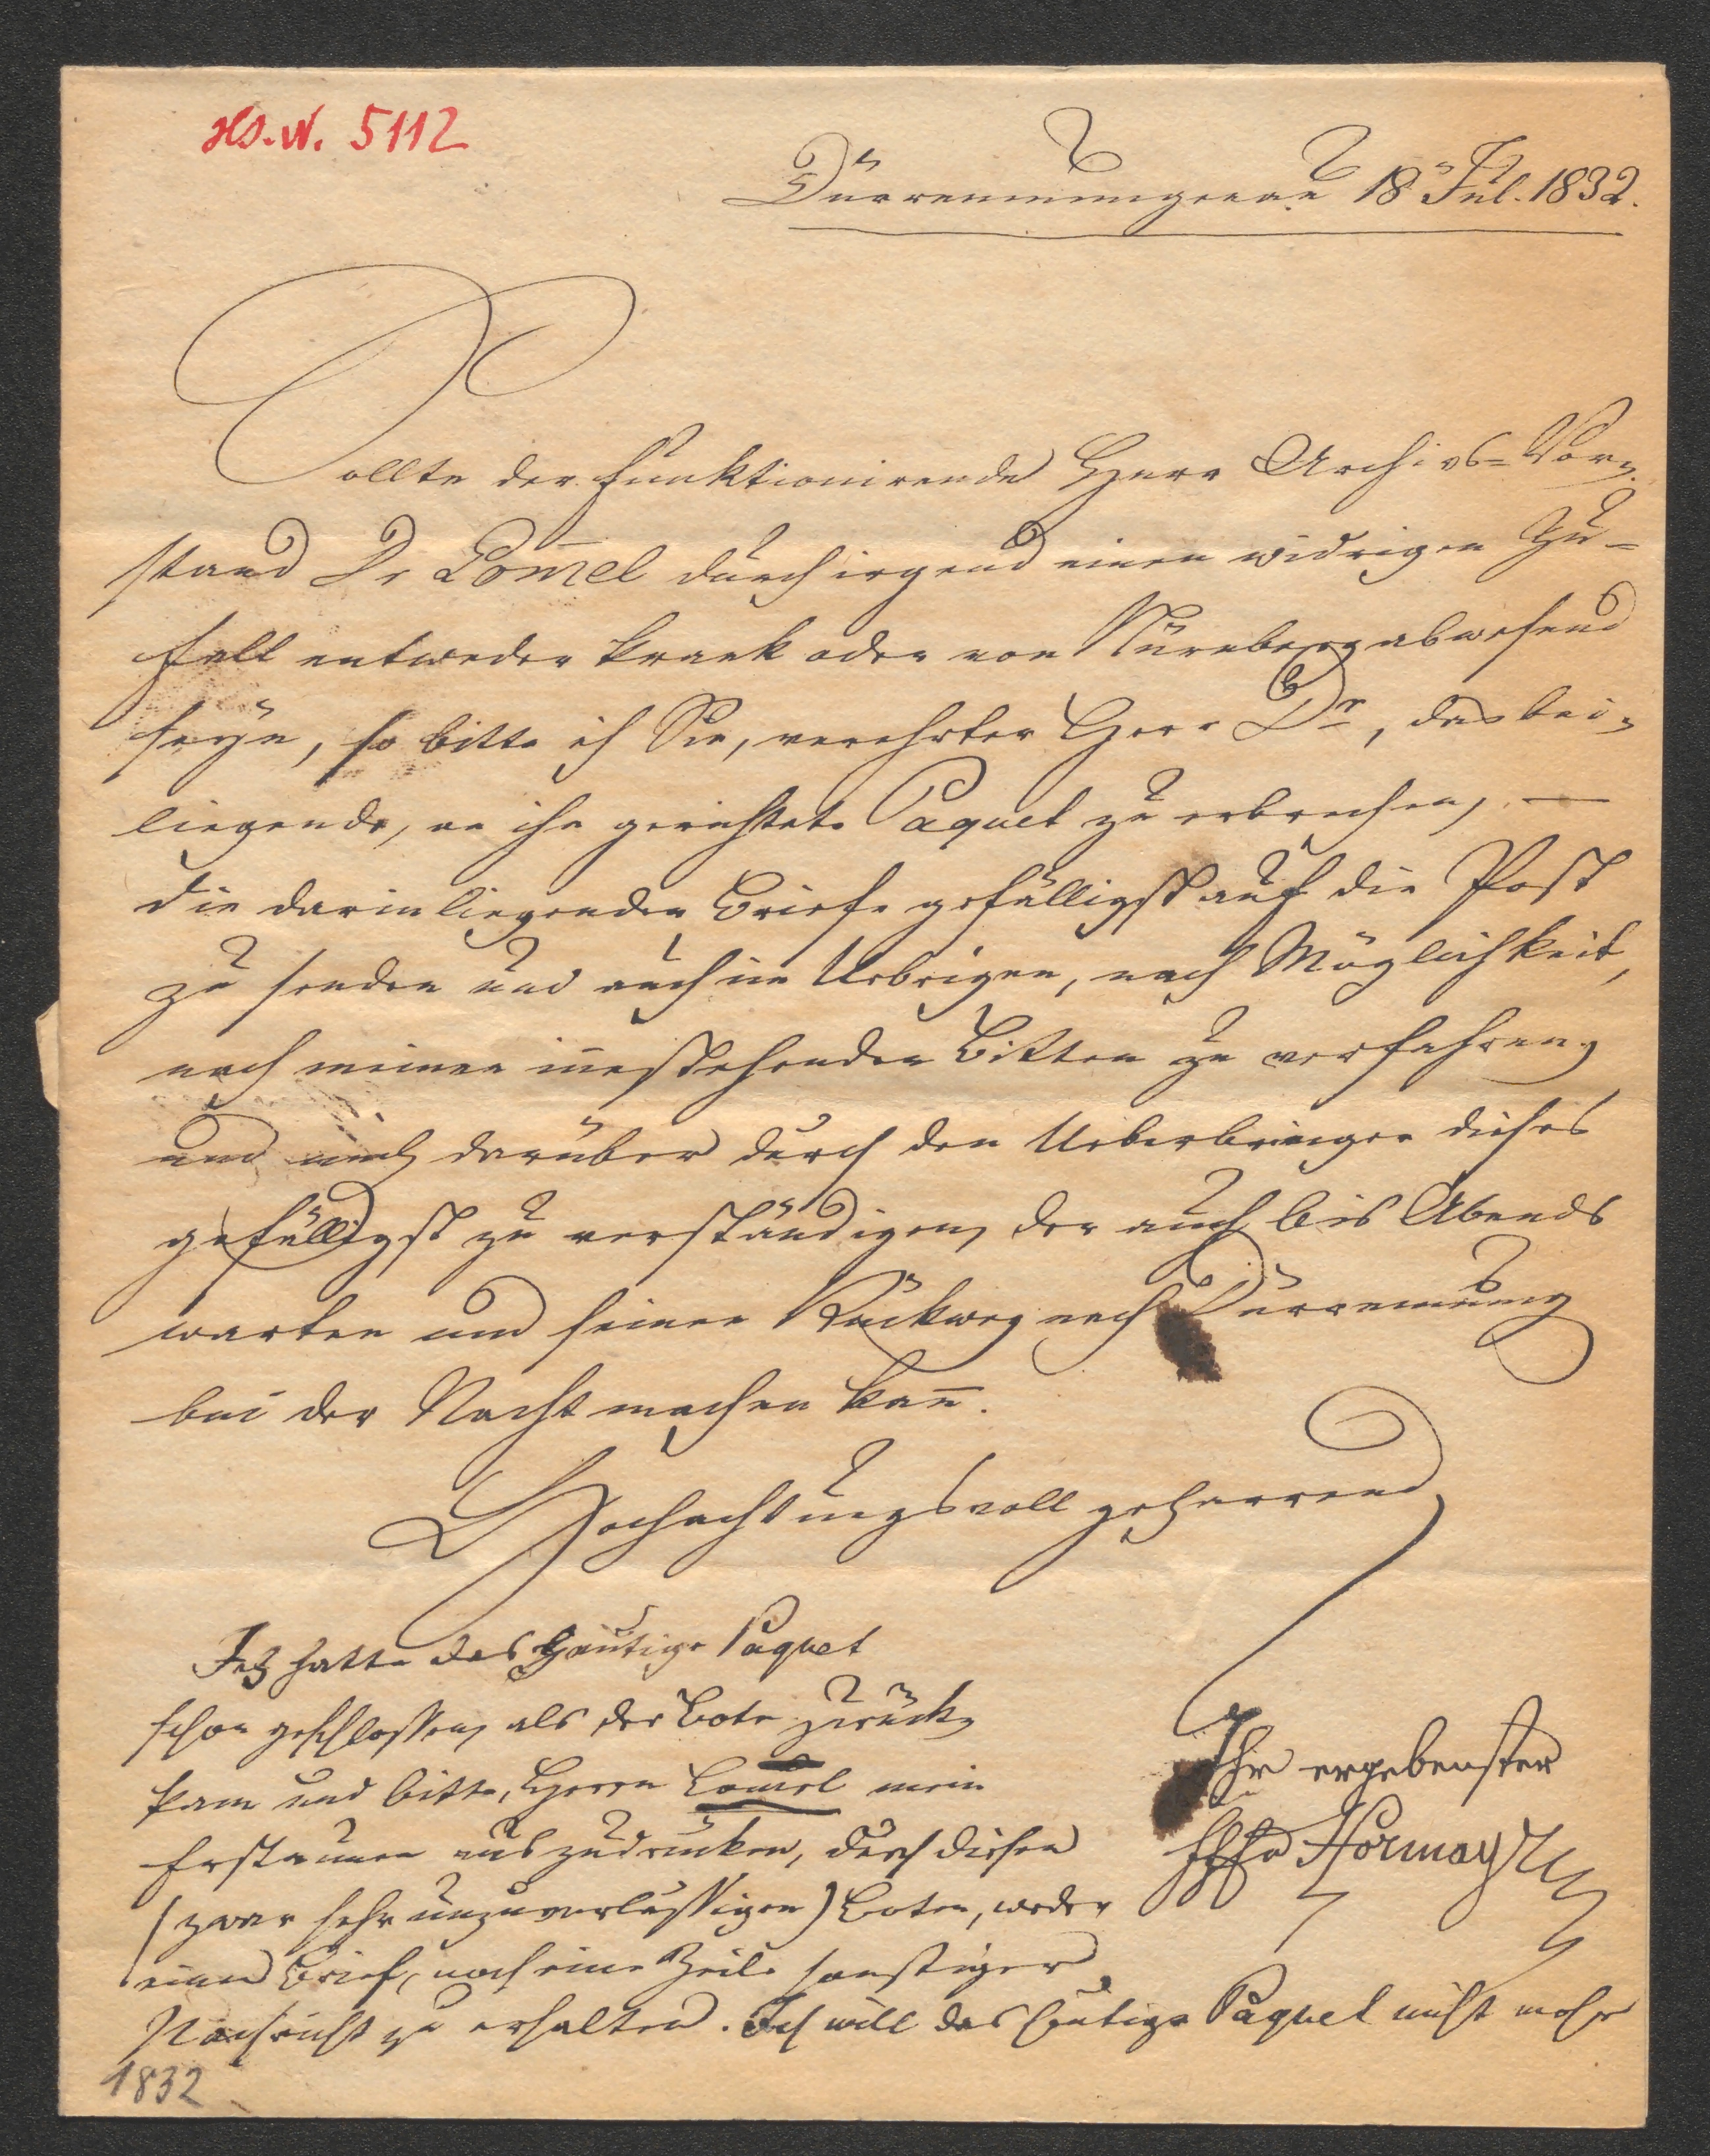 Hs.N. 5112
Dürrenmungenau 18 Jul. 1832.
Sollte der funktionirende Herr Archivs-Vor-
stand Dr Lom̄el durch irgend einen widrigen Zu-
fall entweder krank oder von Nürnberg abwesend
seyn, so bitte ich Sie, verehrter Herr Dr, das bei-
liegende, an ihn gerichtete Paquet zu erbrechen, —
die darin liegenden Briefe gefälligst auf die Post
zu senden und auch im Uebrigen, nach Möglichkeit,
nach meinen innestehenden Bitten zu verfahren,
und mich darüber durch den Ueberbringer dieses
gefälligst zu verständigen, der auch bis Abends
warten und seinen Rückweg nach Dürrenmung
bei der Nacht machen kan̄.
Hochachtungsvoll geharrend
Ihr ergebenster
Hormayr
Ich hatte das heutige Paquet
schon geschlossen, als der Bote zurück-
kam und bitte, Herrn Lom̄el mein
Erstaunen auszudrücken, durch diesen
(zwar sehr unzuverlässigen) Boten, weder
einen Brief, noch eine Zeile sonstiger
Nachricht zu erhalten. Ich will das heutige Paquet nicht mehr
1832